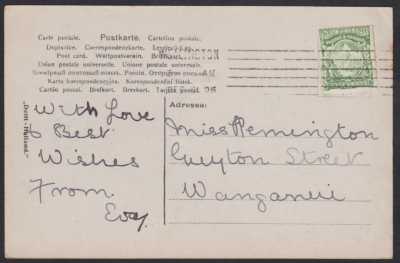 Carte postale. Postkarte. Cartolina postale.
Dopisnice. Correspondenzkarte.
Post card. Weltpostverein. Brefkort.
Union postale universelle. Unione postale universale.
Karta korespondencyjna. Korespondenční lístek.
Cartão postal. Brefkort. Brevkort. Tarjeta postal
Adresse:
With Love
& Best
Wishes
From
Evy.
Miss Remington
Guyton Street
Wanganui